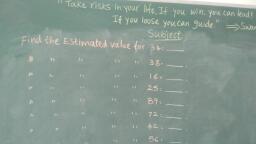 "Take risks in your life. If you win, you can lead!
If you loose you can guide." ⇒
Subject
Find the Estimated value for 34:-___
" " " " " 38:-___
" " " " " 16:-___
" " " " " 25:-___
" " " " " :-___
" " " " " 72:-___
" " " " " 42:-___
" " " " " 56:-___